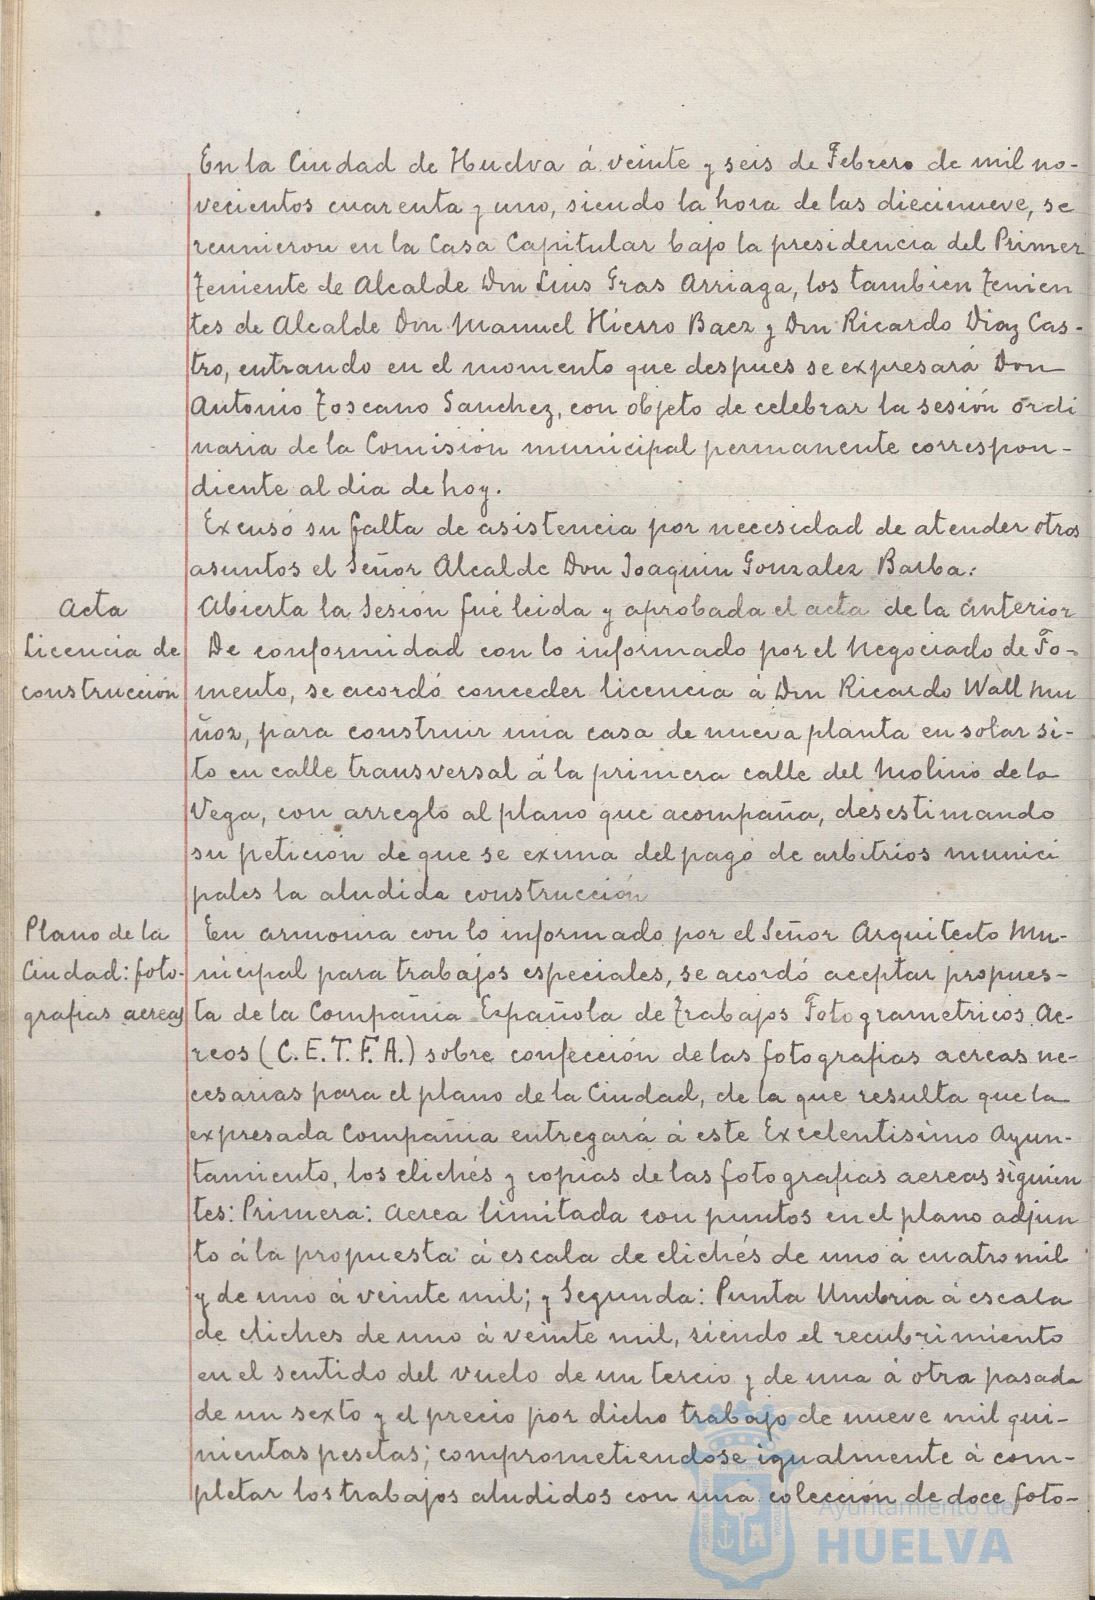 En la Ciudad de Huelva á veinte y seis de Febrero de mil no-
vecientos cuarenta y uno, siendo la hora de las diecinueve, se
reunieron en la Casa Capitular bajo la presidencia del Primer
Teniente de Alcalde Don Luis Gras Arriaga, los tambien Tenien
tes de Alcalde Don Manuel Hierro Baez y Don Ricardo Diaz Cas-
tro, entrando en el momento que despues se expresará Don
Antonio Toscano Sanchez, con objeto de celebrar la sesión ordi
naria de la Comisión municipal permanente correspon-
diente al dia de hoy.
Excusó su falta de asistencia por necesidad de atender otros
asuntos el Señor Alcalde Don Joaquin Gonzalez Barba:
Acta
Abierta la Sesión fué leida y aprobada el acta de la anterior
Licencia de
construcción
De conformidad con lo informado por el Negociado de Fo-
mento, se acordó conceder licencia á Don Ricardo Wall Mu
ñoz, para construir una casa de nueva planta en solar si-
to en calle transversal á la primera calle del Molino de la
Vega, con arreglo al plano que acompaña, desestimando
su petición de que se exima del pago de arbitrios munici
pales la aludida construcción
Plano de la
Ciudad: foto-
grafias aereas
En armonia con lo informado por el Señor Arquitecto Mu-
nicipal para trabajos especiales, se acordó aceptar propues-
ta de la Compañia Española de Trabajos Fotogrametricos Ae-
reos (C.E.T.F.A.) sobre confección de las fotografias aereas ne-
cesarias para el plano de la Ciudad, de la que resulta que la
expresada Compañia entregará á este Excelentisimo Ayun-
tamiento, los clichés y copias de las fotografias aereas siguien
tes: Primera: Aerea limitada con puntos en el plano adjun
to á la propuesta á escala de clichés de uno á cuatro mil
y de uno á veinte mil; y Segunda: Punta Umbria á escala
de cliches de uno á veinte mil, siendo el recubrimiento
en el sentido del vuelo de un tercio y de una á otra pasada
de un sexto y el precio por dicho trabajo de nueve mil qui-
nientas pesetas; comprometiendose igualmente á com-
pletar los trabajos aludidos con una colección de doce foto-
Ayuntamiento de
HUELVA